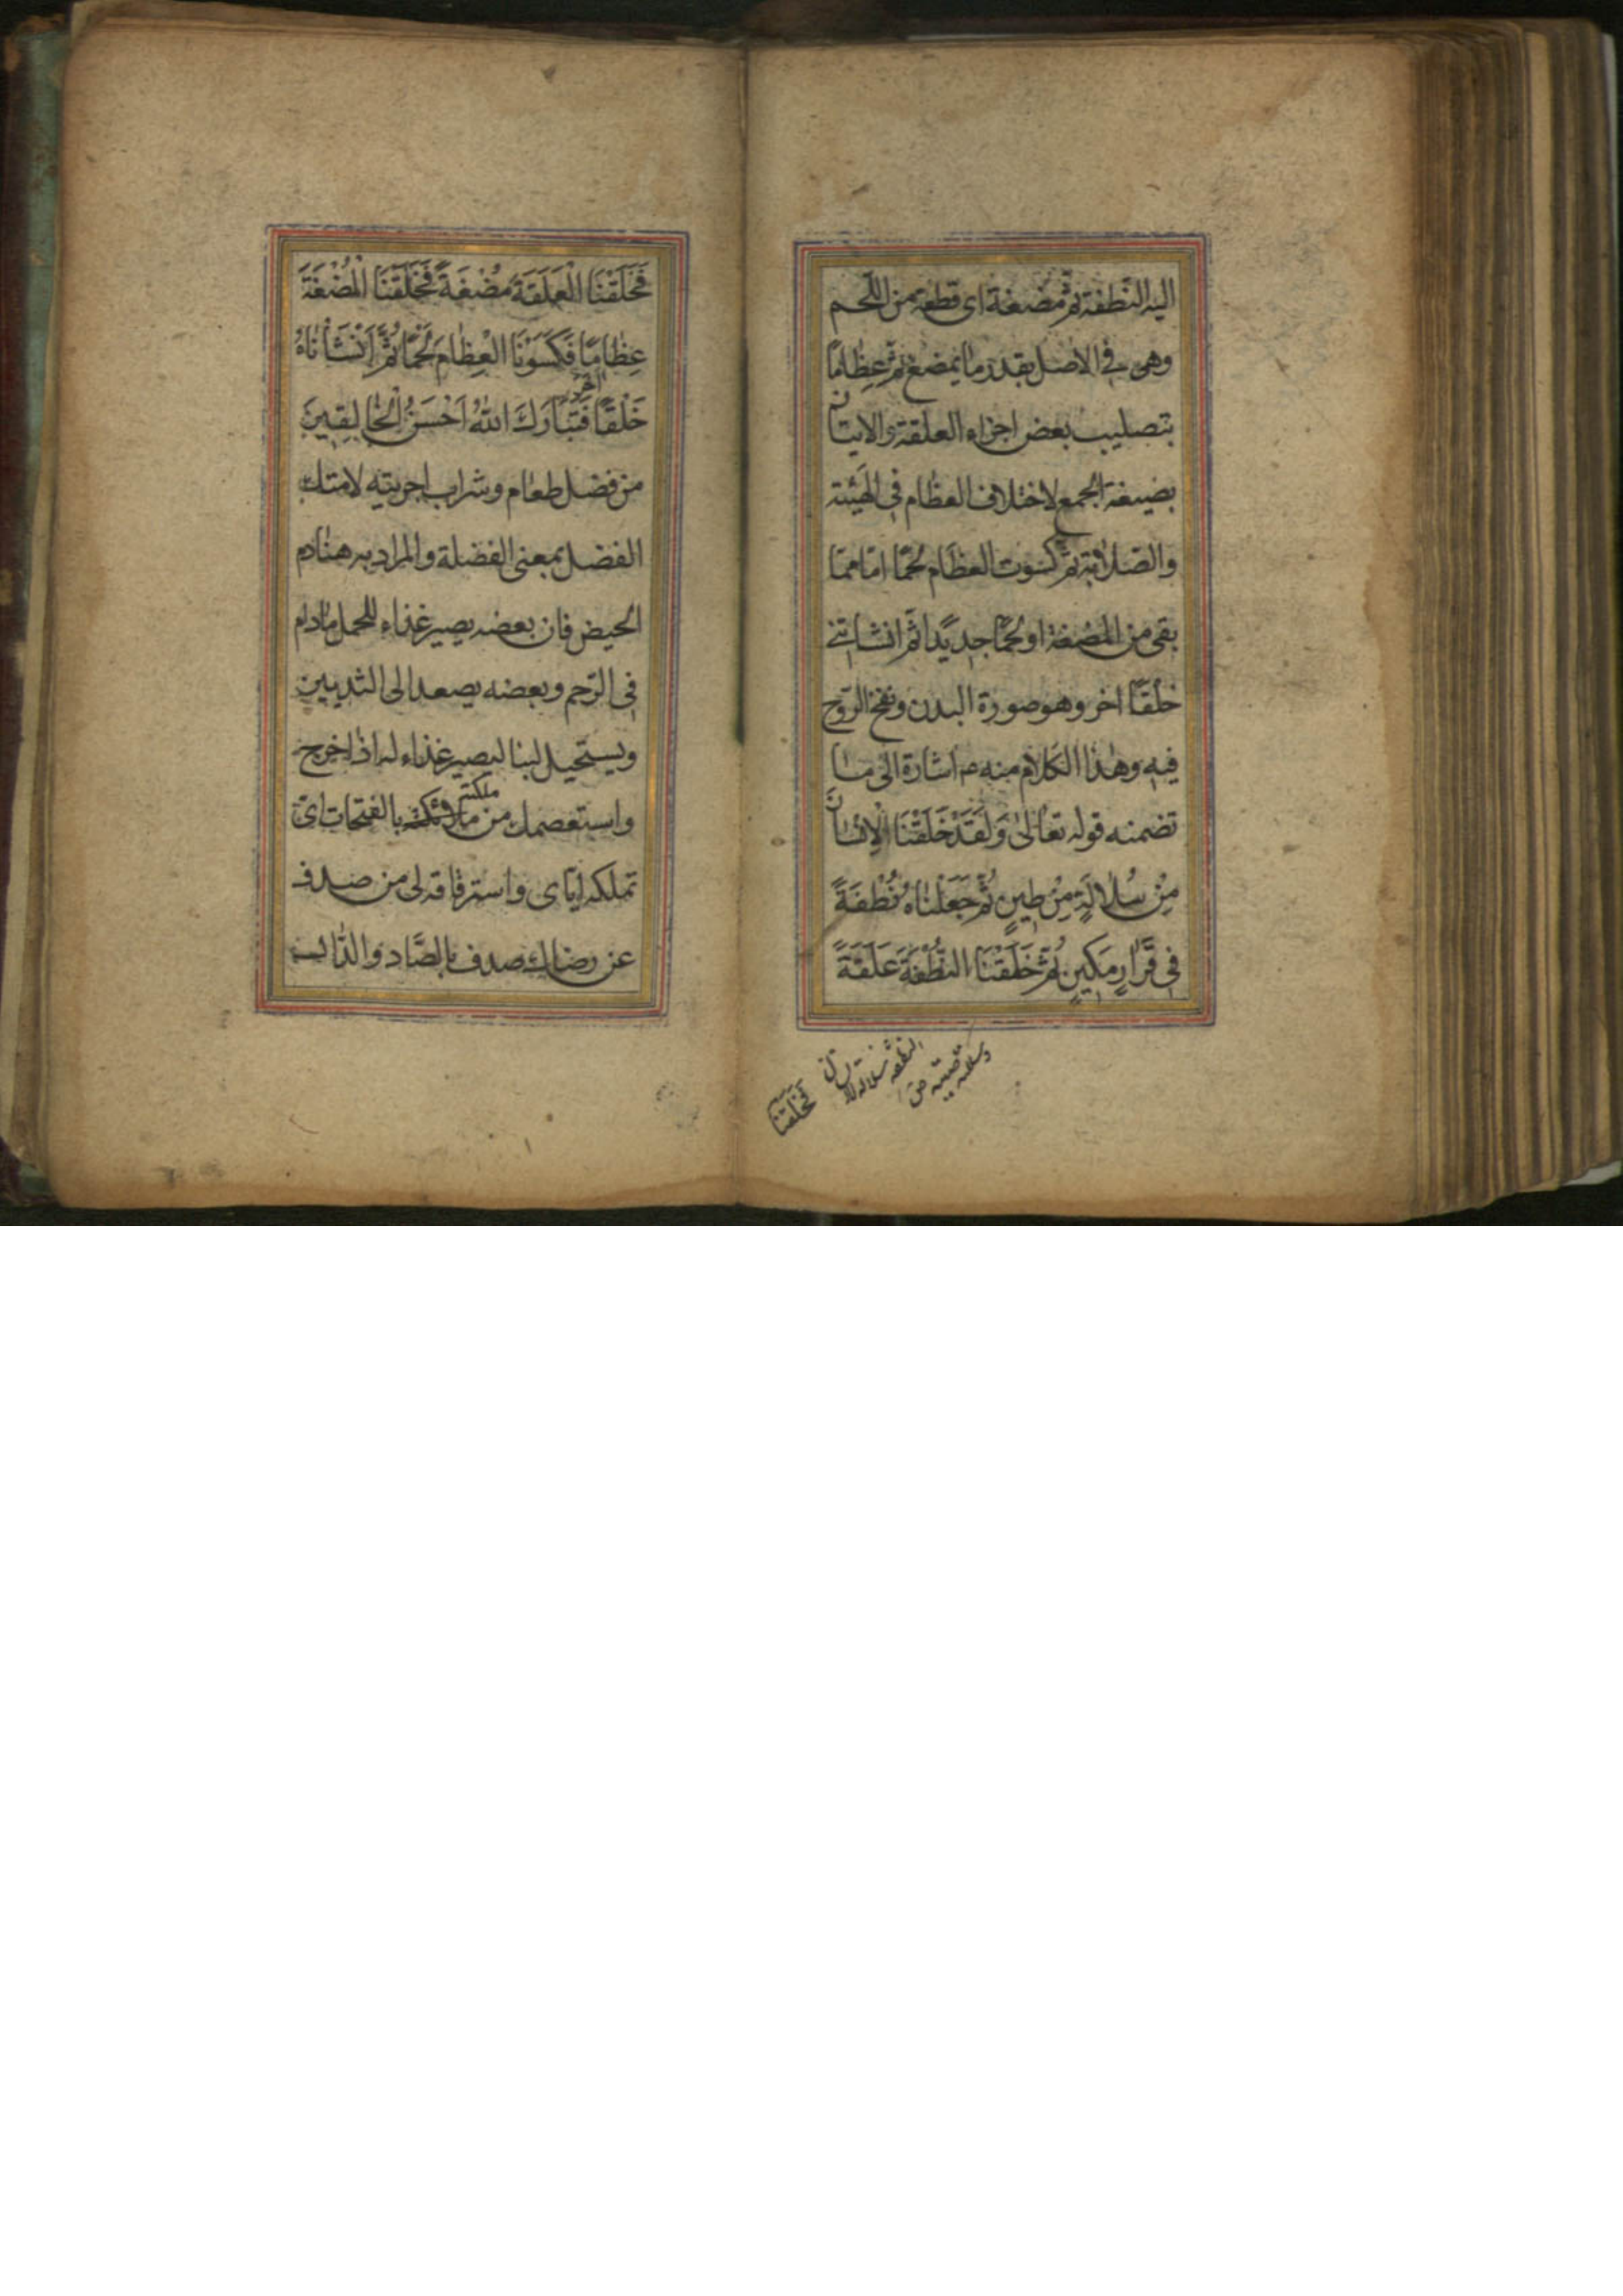 اليه النّطفة ثمّ مضغة اى قطعة من اللّحم
وهى فى الاصل بقدر ما يمضغ ثمّ عظاما
بتصليب بعض اجزاء العلقة والاتيان
بصيغة الجمع لاختلاف العظام فى الهيئة
والصلابة ثمّ كسوت العظام لحمًا امّا ممّا
بقى من المضغة او لحمًا جديدًا ثمّ انشاتنى
خلقًا اخر وهو صورة البدن ونفخ الرّوح
فيه وهذا الكلام منه ع اشارة الى ما
تضمنه قوله تعالى وَلَقَدْ خَلَقْنَا الْاِنْسَانَ
مِنْ سُلَالَةٍ مِنْ طِينٍ ثُمَّ جَعَلْنَاهُ نُطْفَةً
فِى قَرَارٍ مَكِينٍ ثُمَّ خَلَقْنَا النُّطْفَةَ عَلَقَةً
فخلقنا
فَخَلَقْنَا الْعَلَقَةَ مُضْغَةً فَخَلَقْنَا الْمُضْغَةَ
عِظَامًا فَكَسَوْنَا الْعِظَامَ لَحْمًا ثُمَّ اَنْشَأْنَاهُ
خَلْقًا آخر فَتَبَارَكَ اللّٰهُ اَحْسَنُ الْخَالِقِينَ
من فضل طعام وشراب اجريته لامتك
الفضل بمعنى الفضلة والمراد به هنا دم
الحيض فان بعضه يصير غذاء للحمل مادام
فى الرّحم وبعضه يصعد الى الثديين
ويستحيل لبنا ليصير غذاء له اذا خرج
واستعصمك من ملكته بالفتحات اى
تملكه ايّاى واسترقاقه لى من صدف
عن رضاك صدف بالصّاد والدّال